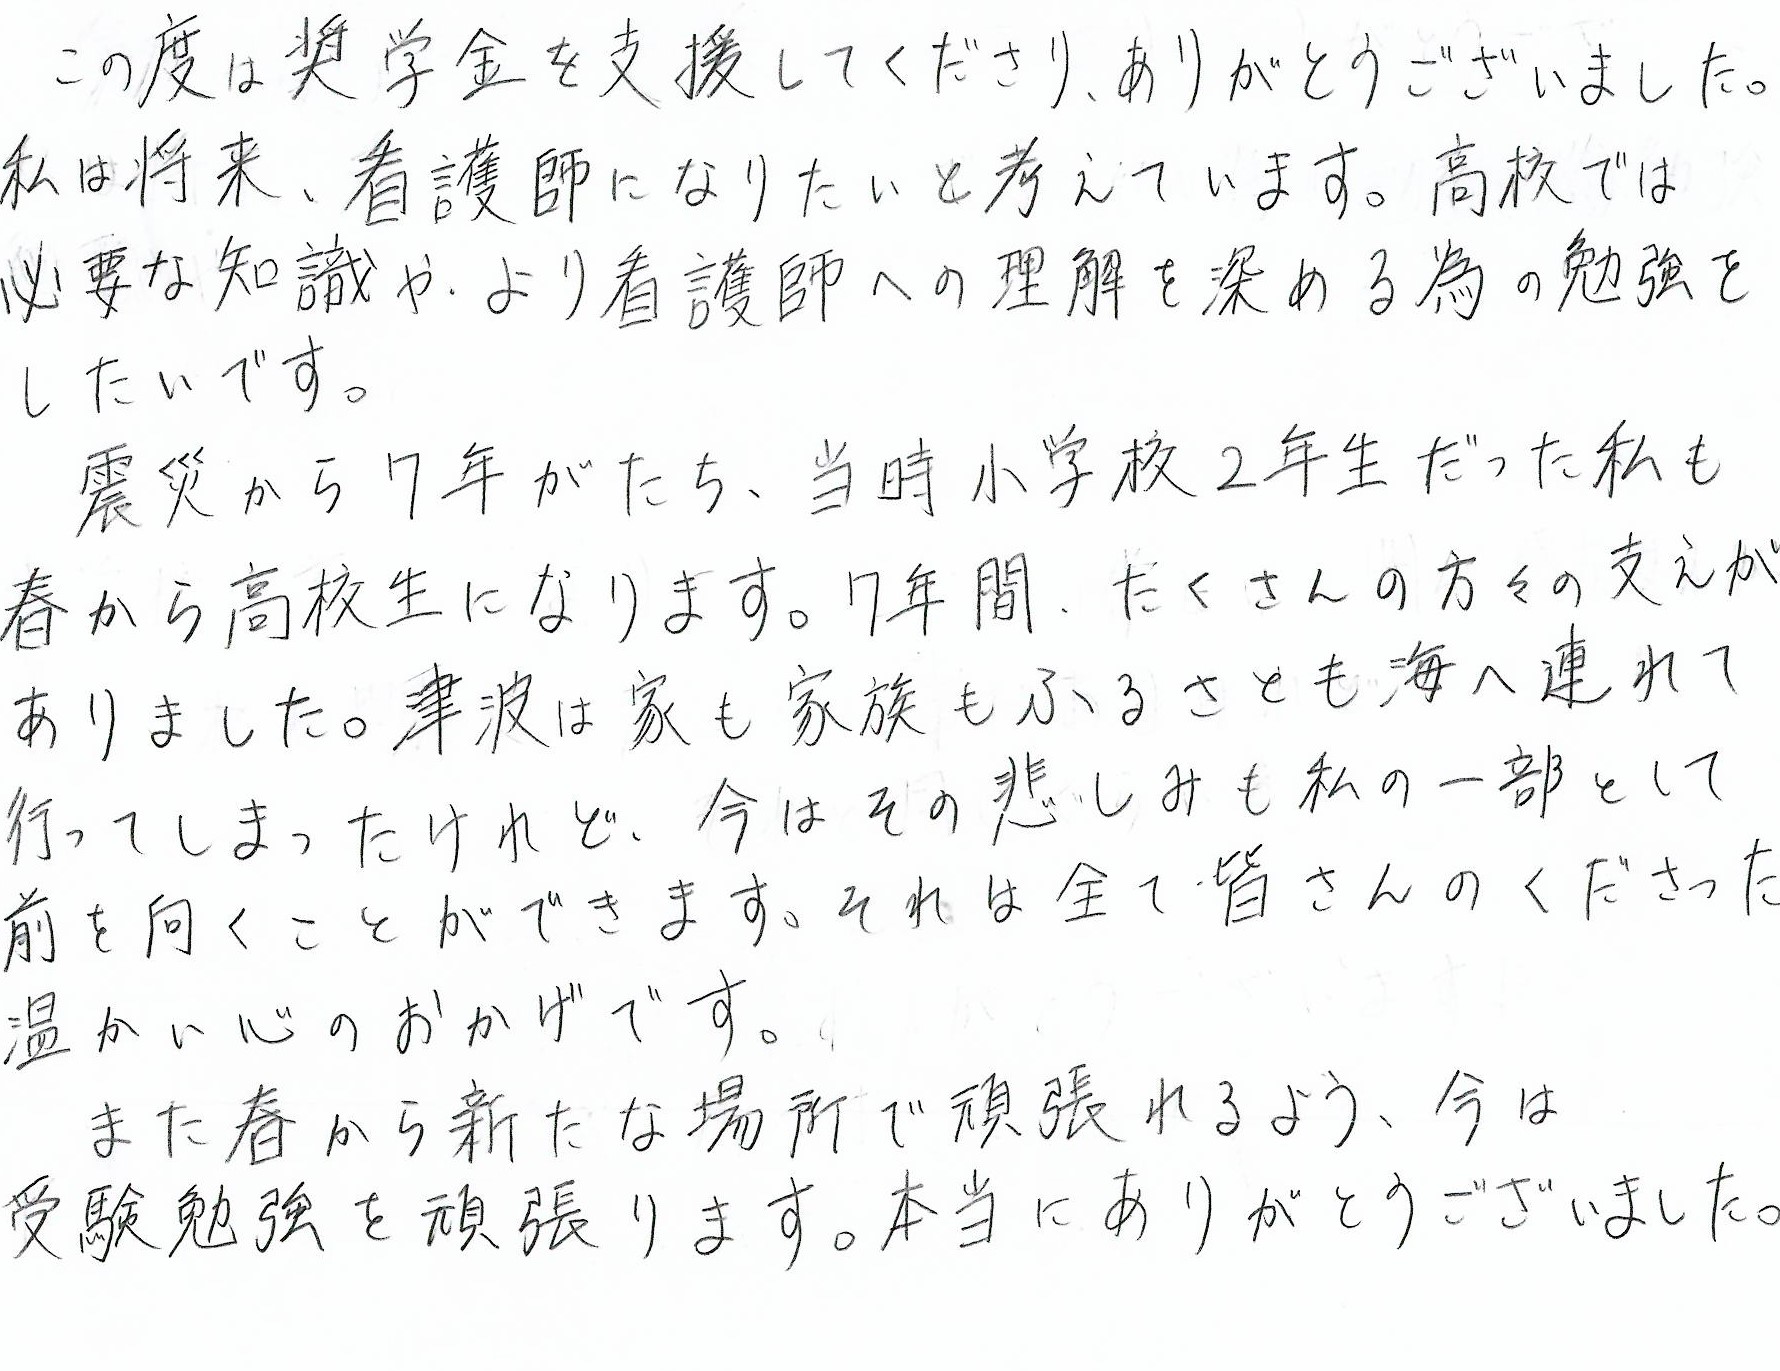 この度は奨学金を支援してくださり、ありがとうございました。
私は将来、看護師になりたいと考えています。高校では
必要な知識や、より看護師への理解を深める為の勉強を
したいです。
震災から7年がたち、当時小学校2年生だった私も
春から高校生になります。7年間、たくさんの方々の支えが
ありました。津波は家も家族もふるさとも海へ連れて
行ってしまったけれど、今はその悲しみも私の一部として
前を向くことができます。それは全て皆さんのくださった
温かい心のおかげです。
また春から新たな場所で頑張れるよう、今は
受験勉強を頑張ります。本当にありがとうございました。